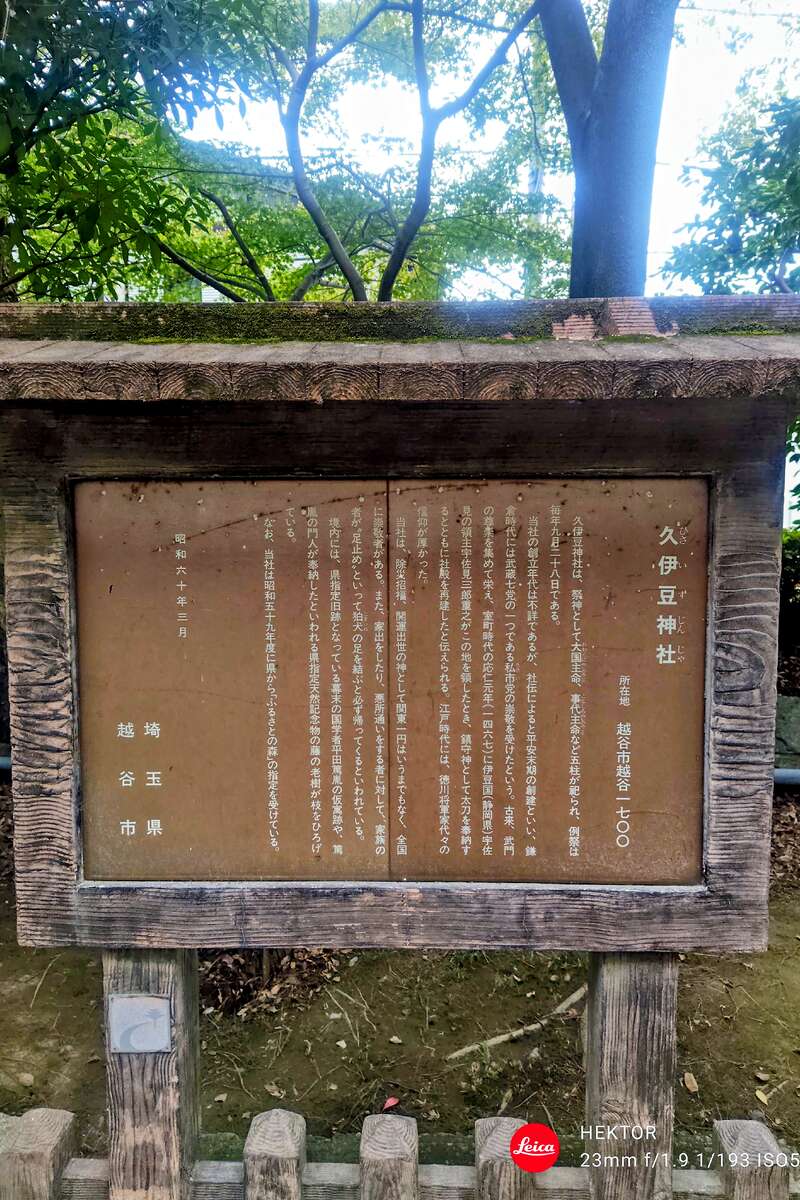 久伊豆神社
ひさ い ず じん じゃ
所在地 越谷市越谷一七〇〇
久伊豆神社は、祭神として大国主命、事代主命など五柱が祀られ、例祭は
毎年九月二十八日である。
当社の創立年代は不詳であるが、社伝によると平安末期の創建といい、鎌
倉時代には武蔵七党の一つである私市党の崇敬を受けたという。古来、武門
の尊崇を集めて栄え、室町時代の応仁元年(一四六七)に伊豆国(静岡県)宇佐
見の領主宇佐見三郎重之がこの地を領したとき、鎮守神として太刀を奉納す
るとともに社殿を再建したと伝えられる。江戸時代には、徳川将軍家代々の
信仰が厚かった。
当社は、除災招福、開運出世の神として関東一円はいうまでもなく、全国
に崇敬者がある。また、家出をしたり、悪所通いをする者に対して、家族の
者が“足止め”といって狛犬の足を結ぶと必ず帰ってくるといわれている。
境内には、県指定旧跡となっている幕末の国学者平田篤胤の仮寓跡や、篤
胤の門人が奉納したといわれる県指定天然記念物の藤の老樹が枝をひろげ
ている。
なお、当社は昭和五十九年度に県から“ふるさとの森”の指定を受けている。
昭和六十年三月
埼玉県
越谷市
Leica
HEKTOR
23mm f/1.9 1/193 ISO5